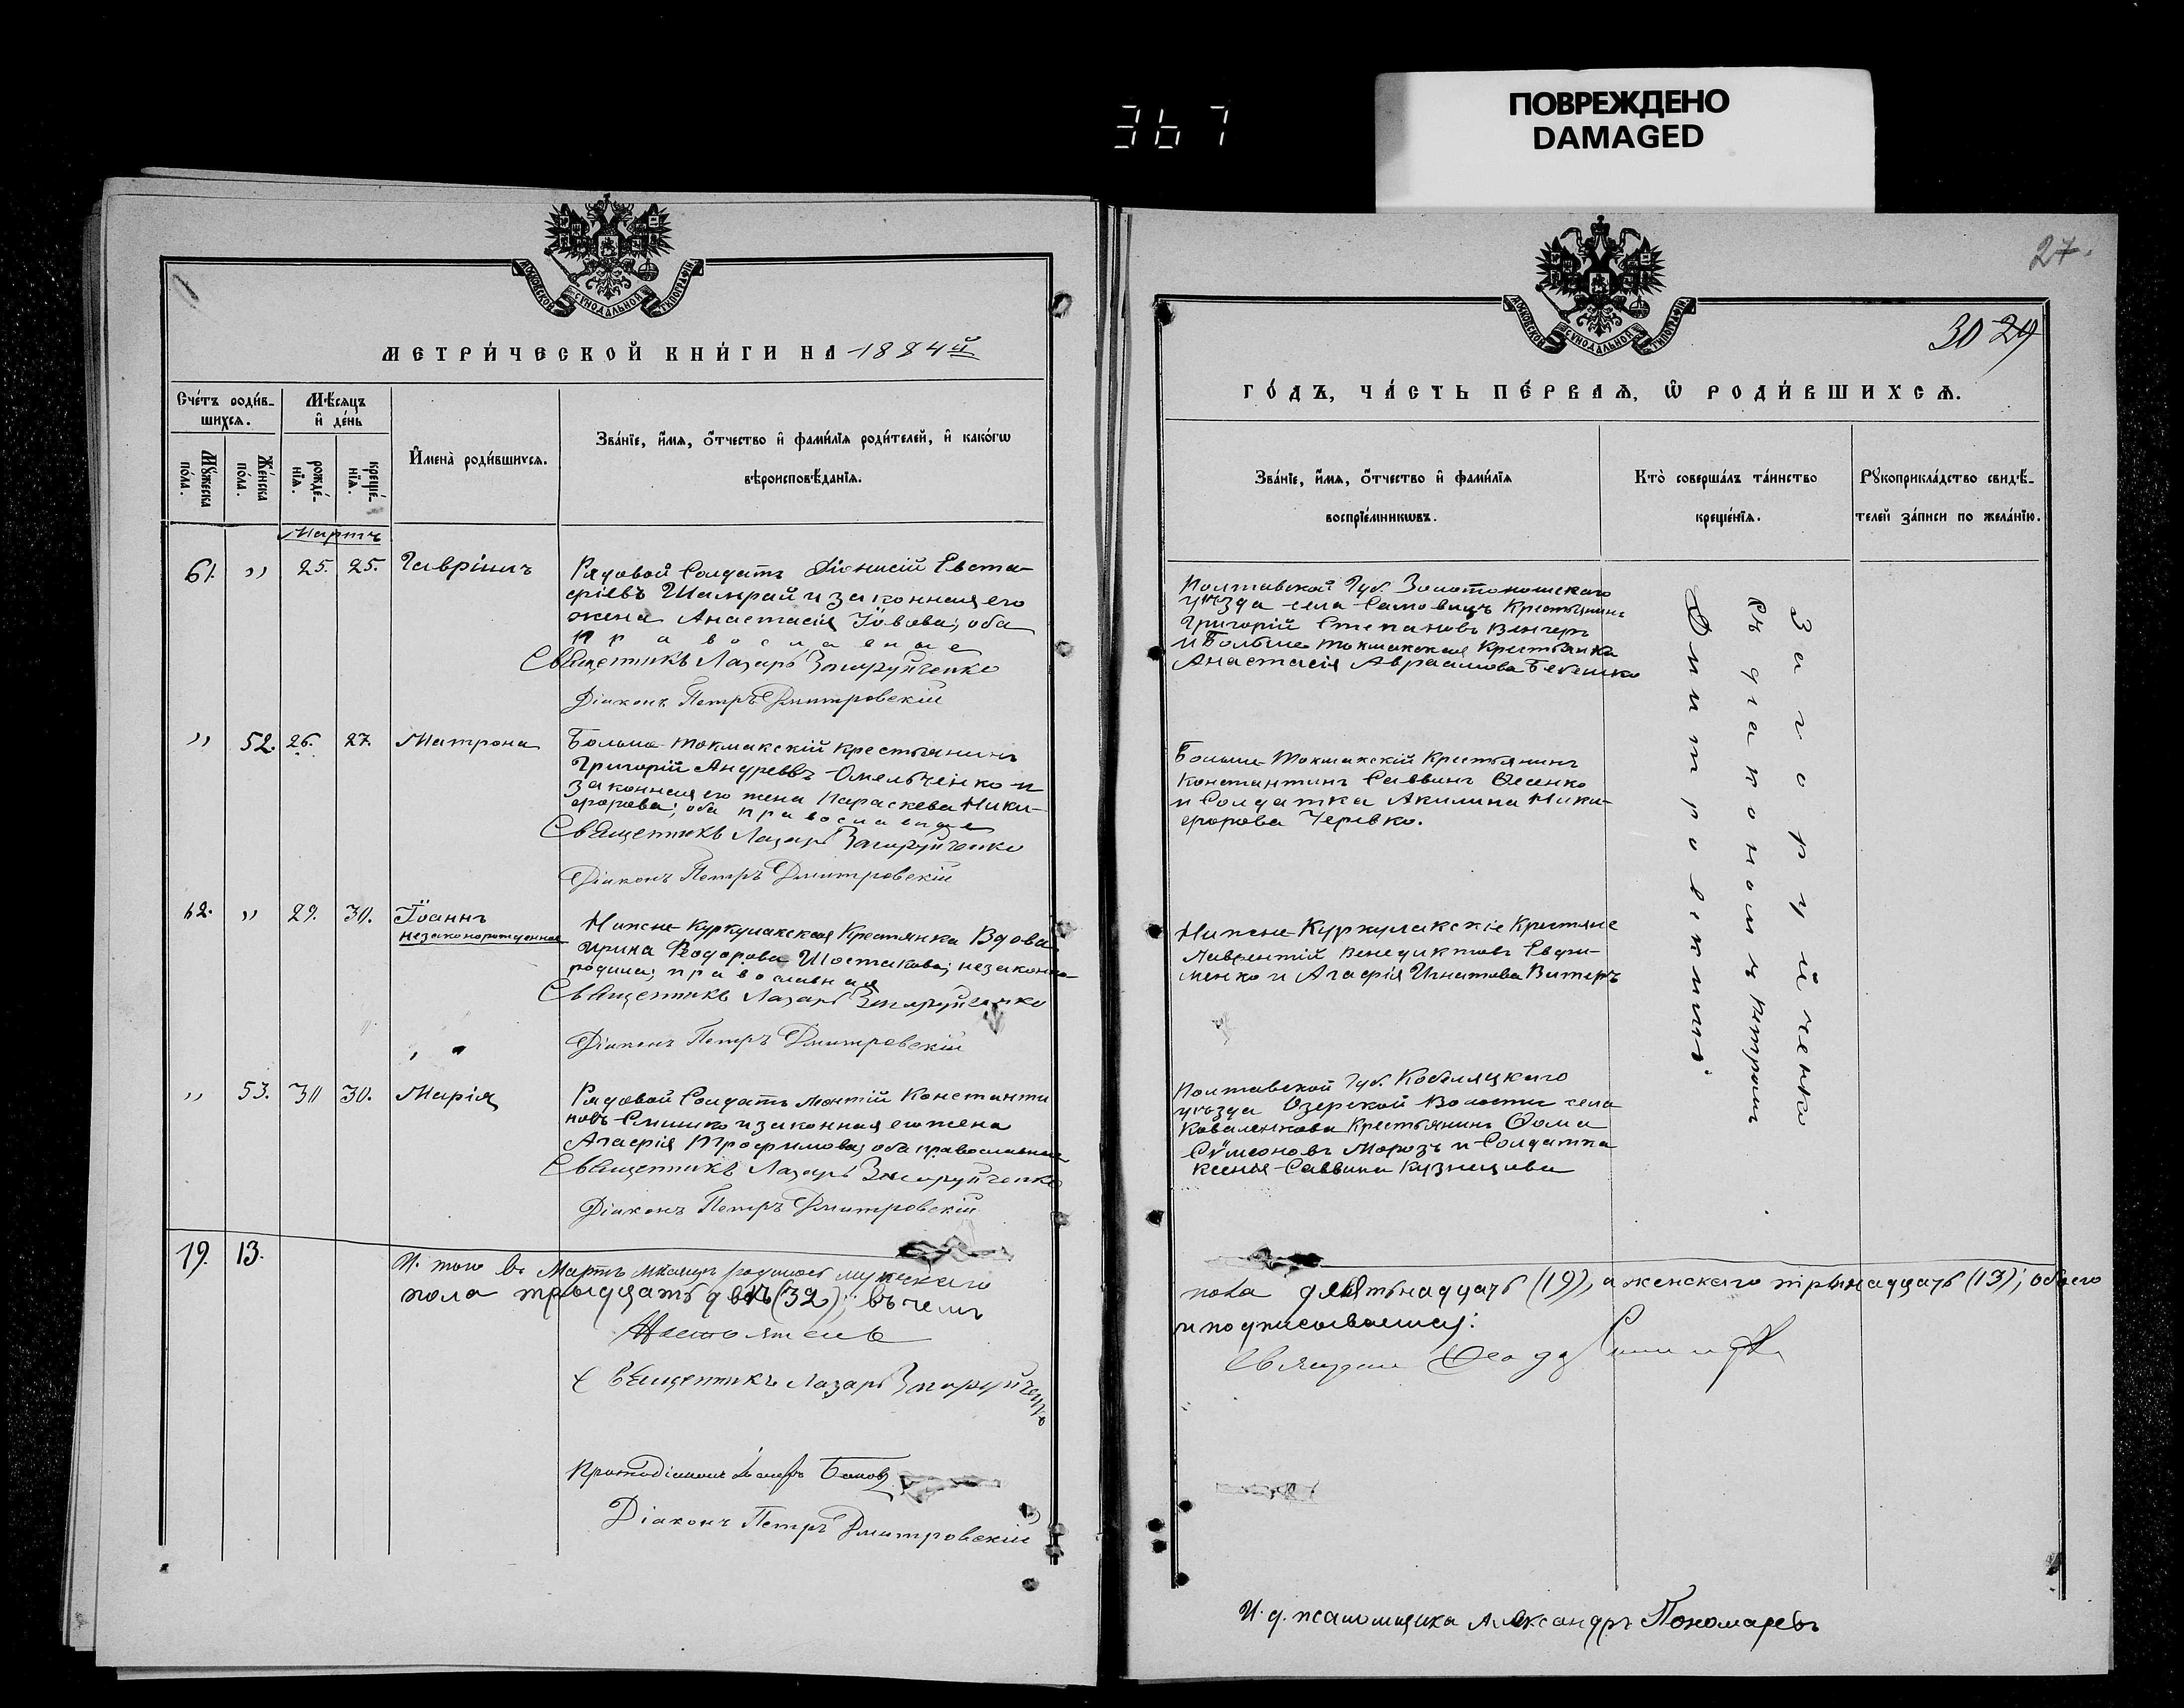 367
ПОВРЕЖДЕНО
DAMAGED
МОСКОВСКОЙ СѴНОДАЛЬНОЙ ТИПОГРАФІИ
МЕТРИ́ЧЕСКОЙ КНИ́ГИ НА 1884й
Сче́тъ роди́в-
шихсѧ.
Мѣ́сѧцъ
и҆ де́нь
И҆мена̀ роди́вшихсѧ.
Зва́нїе, и҆́мѧ, ѻ҆́тчество и҆ фами́лїѧ роди́телей, и҆ како́гѡ
вѣроисповѣ́данїѧ.
Мꙋ́жеска по́ла.
Же́нска по́ла.
рожде́-нїѧ.
креще́-нїѧ.
Мартъ
61. " 25. 25. Гавріилъ
Рядовой Солдатъ Діонисій Евста-
фіевъ Шамрай и законная его
жена Анастасія Іовова; оба
православные
Священникъ Лазарь Загоруйченко
Діаконъ Петръ Дмитровскій
" 52. 26. 27. Матрона
Больше-Токмакскій крестьянинъ
Григорій Андреевъ Омельченко и
законная его жена Параскева Ники-
форова; оба православные
Священникъ Лазарь Загоруйченко
Діаконъ Петръ Дмитровскій
62. " 29. 30. Іоаннъ
незаконорожденный
Нижне-Куркулакская Крестьянка Вдова
Ирина Ѳеодорова Шостакова; незаконно
родила; православная
Священникъ Лазарь Загоруйченко
Діаконъ Петръ Дмитровскій
" 53. 30 30. Марія
Рядовой Солдатъ Леонтій Константи
новъ Слишко и законная его жена
Агафія Трофимова; оба православные
Священникъ Лазарь Загоруйченко
Діаконъ Петръ Дмитровскій
19. 13.
И того въ Мартѣ мѣсяцѣ родилось мужскаго
пола тридцать двѣ (32); въ чемъ
Настоятель
Священникъ Лазарь Загоруйченко
Протодіаконъ
Діаконъ Петръ Дмитровскій
27.
30 29
МОСКОВСКОЙ СѴНОДАЛЬНОЙ ТИПОГРАФІИ
ГО́ДЪ, ЧА́СТЬ ПЕ́РВАѦ, Ѡ҆ РОДИ́ВШИХСѦ.
Зва́нїе, и҆́мѧ, ѻ҆́тчество и҆ фами́лїѧ
воспрїе́мникѡвъ.
Кто̀ соверша́лъ та́инство
креще́нїѧ.
Рꙋкоприкла́дство свидѣ́-
телей за́писи по жела́нїю.
Полтавской Губ. Золотоношскаго
уѣзда села Крестьянинъ
Григорій Степановъ Венгеръ
и Больше Токмакская Крестьянка
Анастасія Авраамова
Больше Токмакскій Крестьянинъ
Константинъ Саввинъ
и Солдатка Акилина Ники-
форова Черевко.
Нижне-Куркулакскіе Крестьяне
Лаврентій Венедиктовъ Евфи-
менко и Агафія Игнатова Витеръ
Полтавской Губ. Кобеляцкаго
уѣзда Озерской Волости села
Коваленкова Крестьянинъ Ѳома
Сѵмеоновъ Морозъ и Солдатка
Ксенія Саввина Кузнецова
Загоруйченко
Съ діакономъ Петромъ
Дмитровскимъ
пола девятьнадцать (19), а женскаго тринадцать (13); обоего
и подписываемся:
И. д. псаломщика Александръ Пономаревъ